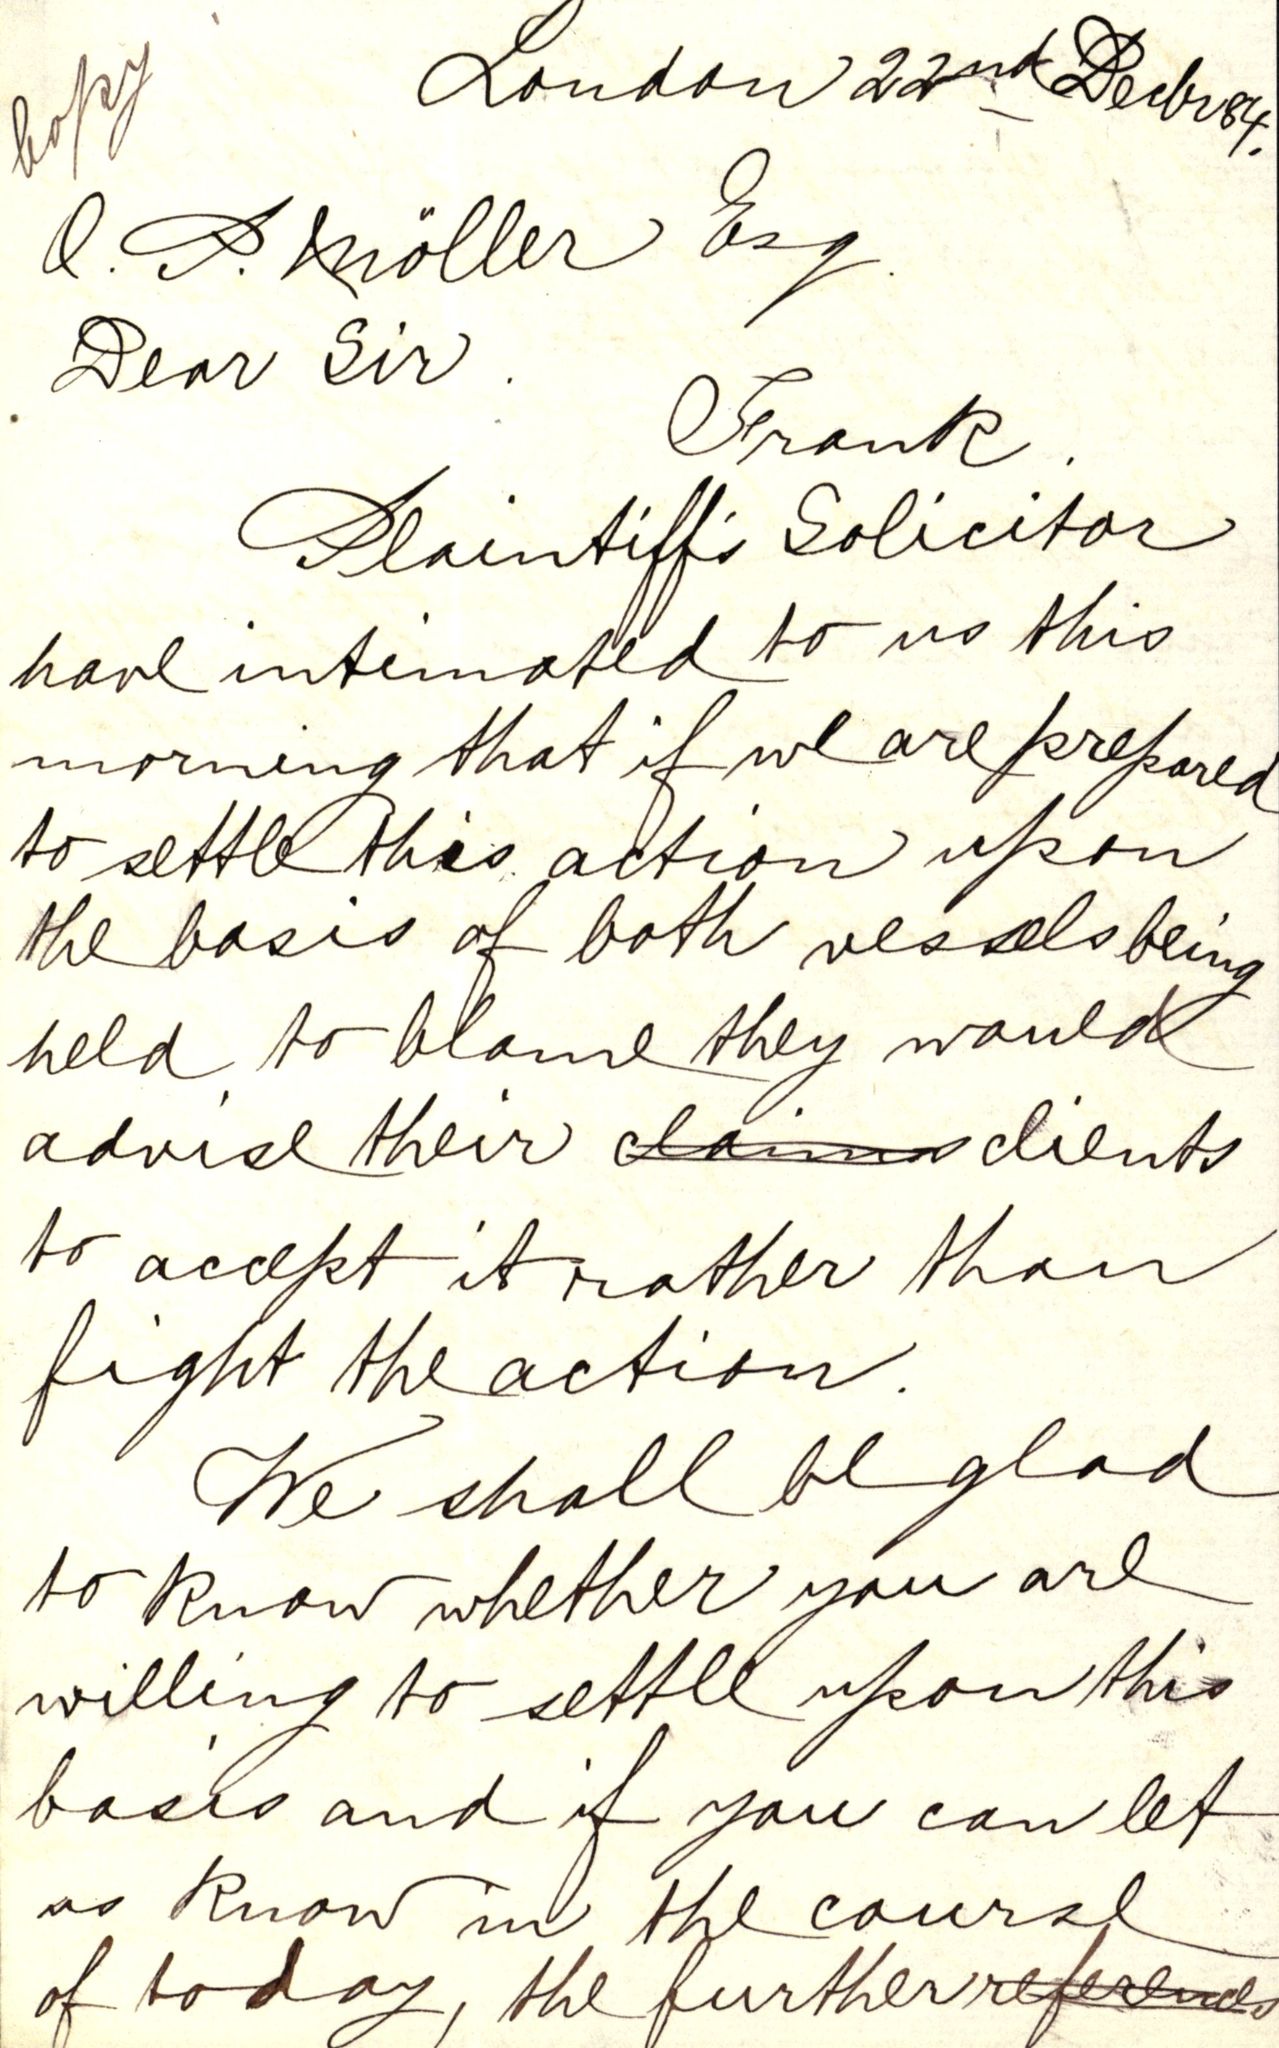 Copy
London 22nd Decbr 84.
O. P. Möller Esq.
Dear Sir.
Frank.
Plaintiff's Solicitor
have intimated to us this
morning that if we are prepared
to settle this action upon
the basis of both vessels being
held to blame they would
advise their claims clients
to accept it rather than
fight the action.
We shall be glad
to know whether you are
willing to settle upon this
basis and if you can let
us know in the course
of today, the further references